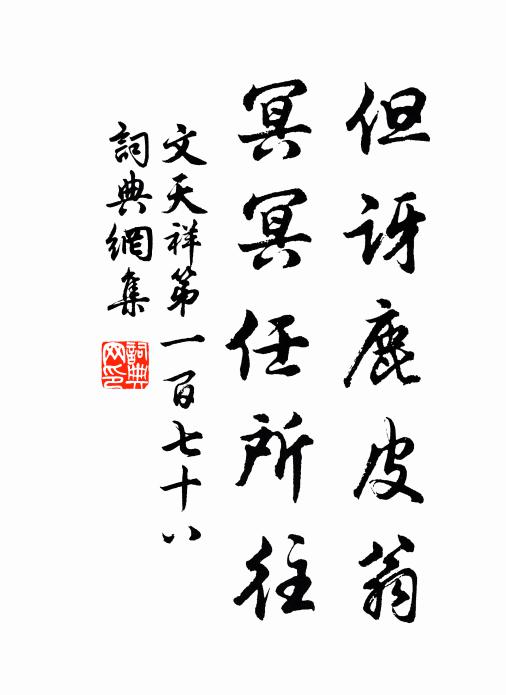 但訝鹿皮翁
冥冥任所往
文天祥第一百七十八
詞典網集
詞典網印